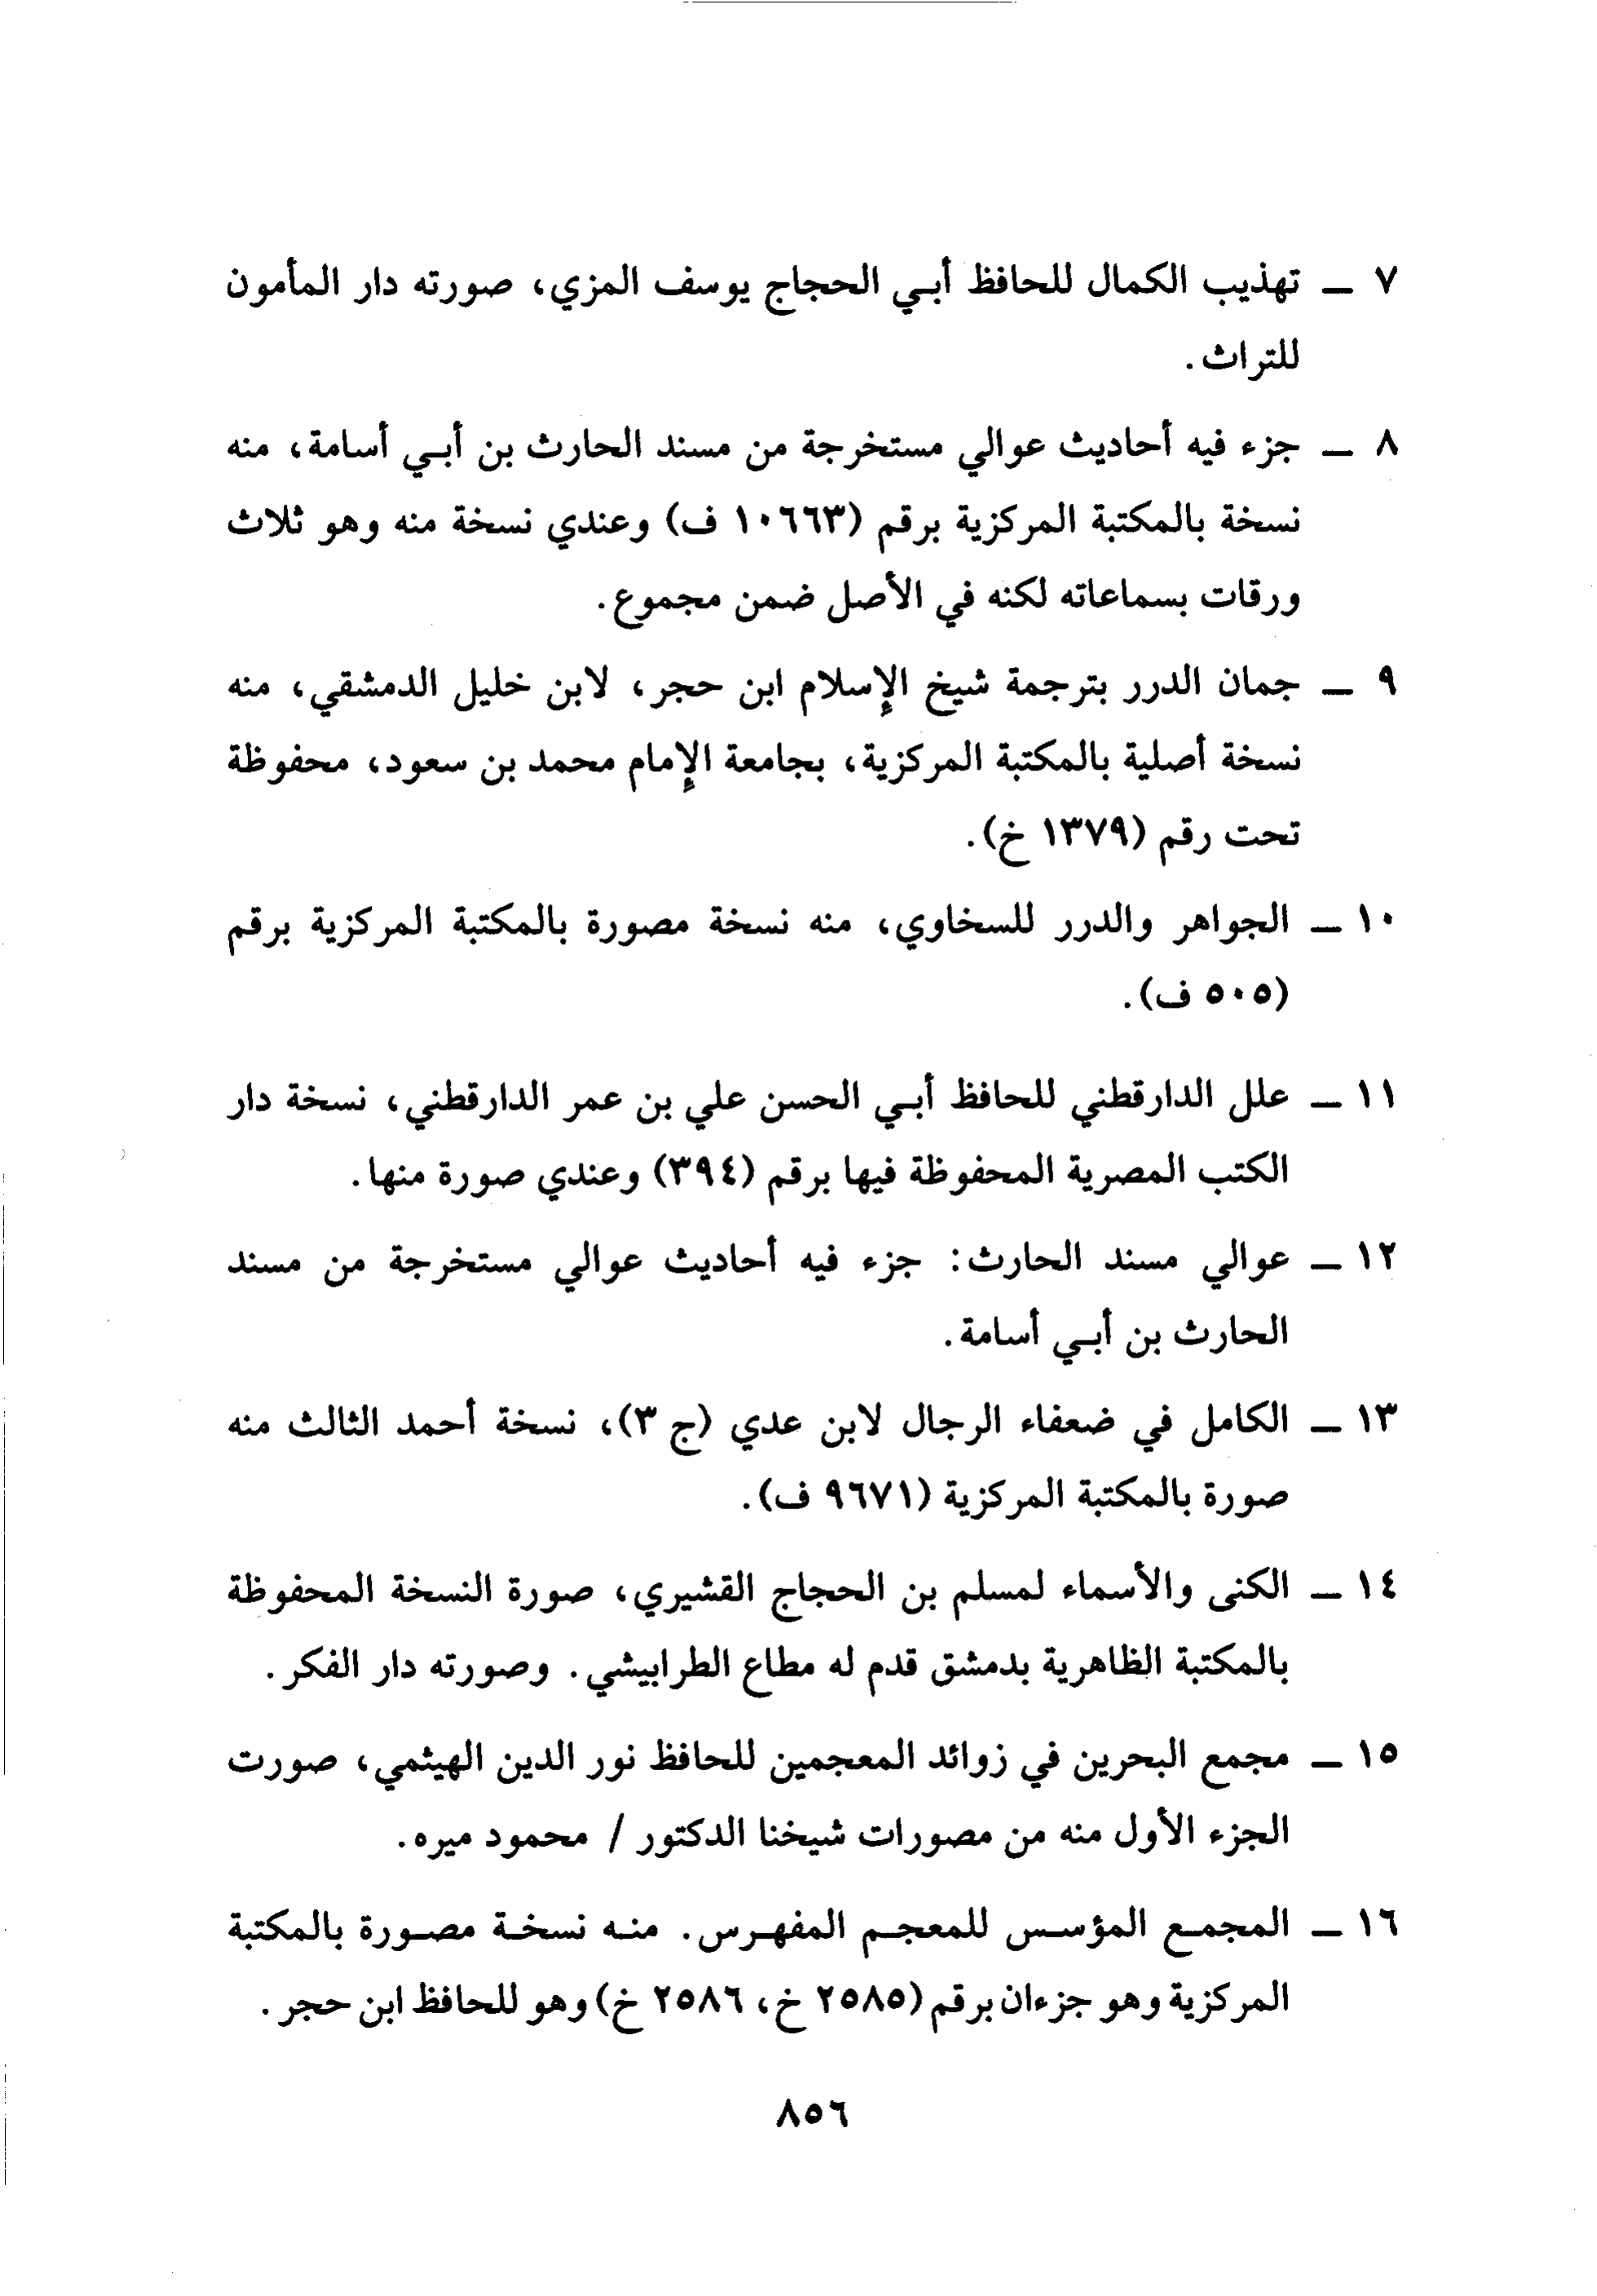 ٧ – تهذيب الكمال للحافظ أبي الحجاج يوسف المزي، صورته دار المأمون
للتراث.
٨ – جزء فيه أحاديث عوالي مستخرجة من مسند الحارث بن أبي أسامة، منه
نسخة بالمكتبة المركزية برقم (١٠٦٦٣ ف) وعندي نسخة منه وهو ثلاث
ورقات بسماعاته لكنه في الأصل ضمن مجموع.
٩ – جمان الدرر بترجمة شيخ الإسلام ابن حجر، لابن خليل الدمشقي، منه
نسخة أصلية بالمكتبة المركزية، بجامعة الإمام محمد بن سعود، محفوظة
تحت رقم (١٣٧٩ خ).
١٠ – الجواهر والدرر للسخاوي، منه نسخة مصورة بالمكتبة المركزية برقم
(٥٠٥ ف).
١١ – علل الدارقطني للحافظ أبي الحسن علي بن عمر الدارقطني، نسخة دار
الكتب المصرية المحفوظة فيها برقم (٣٩٤) وعندي صورة منها.
١٢ – عوالي مسند الحارث: جزء فيه أحاديث عوالي مستخرجة من مسند
الحارث بن أبي أسامة.
١٣ – الكامل في ضعفاء الرجال لابن عدي (ج ٣)، نسخة أحمد الثالث منه
صورة بالمكتبة المركزية (٩٦٧١ ف).
١٤ – الكنى والأسماء لمسلم بن الحجاج القشيري، صورة النسخة المحفوظة
بالمكتبة الظاهرية بدمشق قدم له مطاع الطرابيشي. وصورته دار الفكر.
١٥ – مجمع البحرين في زوائد المعجمين للحافظ نور الدين الهيثمي، صورت
الجزء الأول منه من مصورات شيخنا الدكتور / محمود ميره.
١٦ – المجمع المؤسس للمعجم المفهرس. منه نسخة مصورة بالمكتبة
المركزية وهو جزءان برقم (٢٥٨٥ خ، ٢٥٨٦ خ) وهو للحافظ ابن حجر.
٨٥٦